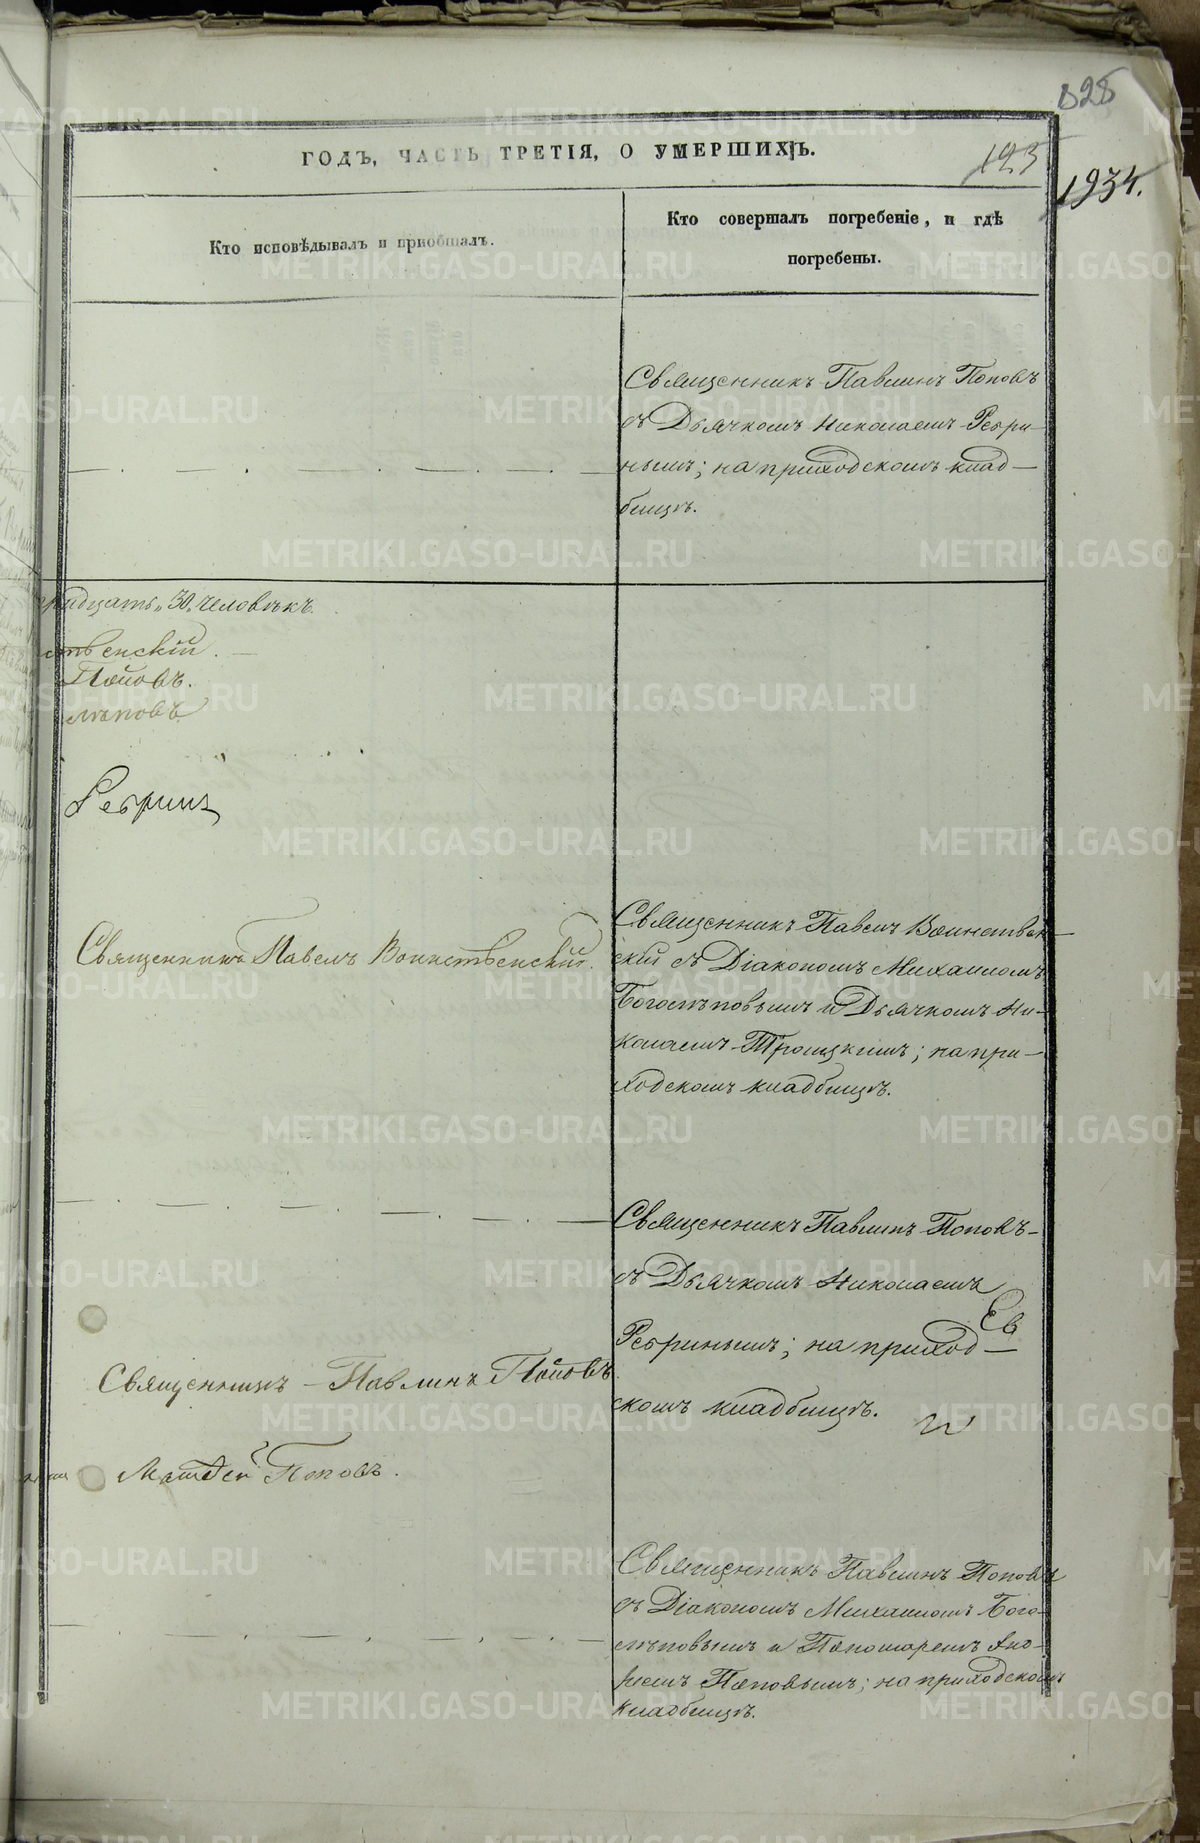 825
ГОДЪ, ЧАСТЬ ТРЕТІЯ, О УМЕРШИХЪ.
123
1934.
Кто исповѣдывалъ и приобщалъ.
Кто совершалъ погребеніе, и гдѣ
погребены.
Священникъ Павлинъ Поповъ
съ Дьячкомъ Николаемъ Ребри-
нымъ; на приходскомъ клад-
бищѣ.
тридцать „30„ человѣкъ.
ственскій.
Поповъ.
лѣповъ
Ребринъ
Священникъ Павелъ Воинственскій.
Священникъ Павелъ Воинствен-
скій съ Діакономъ Михаиломъ
Боголѣповымъ и Дьячкомъ Ни-
колаемъ Троицкимъ; на при-
ходскомъ кладбищѣ.
Священникъ Павлинъ Поповъ
съ Дьячкомъ Николаемъ
Ребринымъ; на приход-
скомъ кладбищѣ.
Священникъ Павлинъ Поповъ.
Матвей Поповъ.
Священникъ Павлинъ Поповъ
съ Діакономъ Михаиломъ Бого-
лѣповымъ и Пономаремъ Анд-
реемъ Поповымъ; на приходскомъ
кладбищѣ.
METRIKI.GASO-URAL.RU